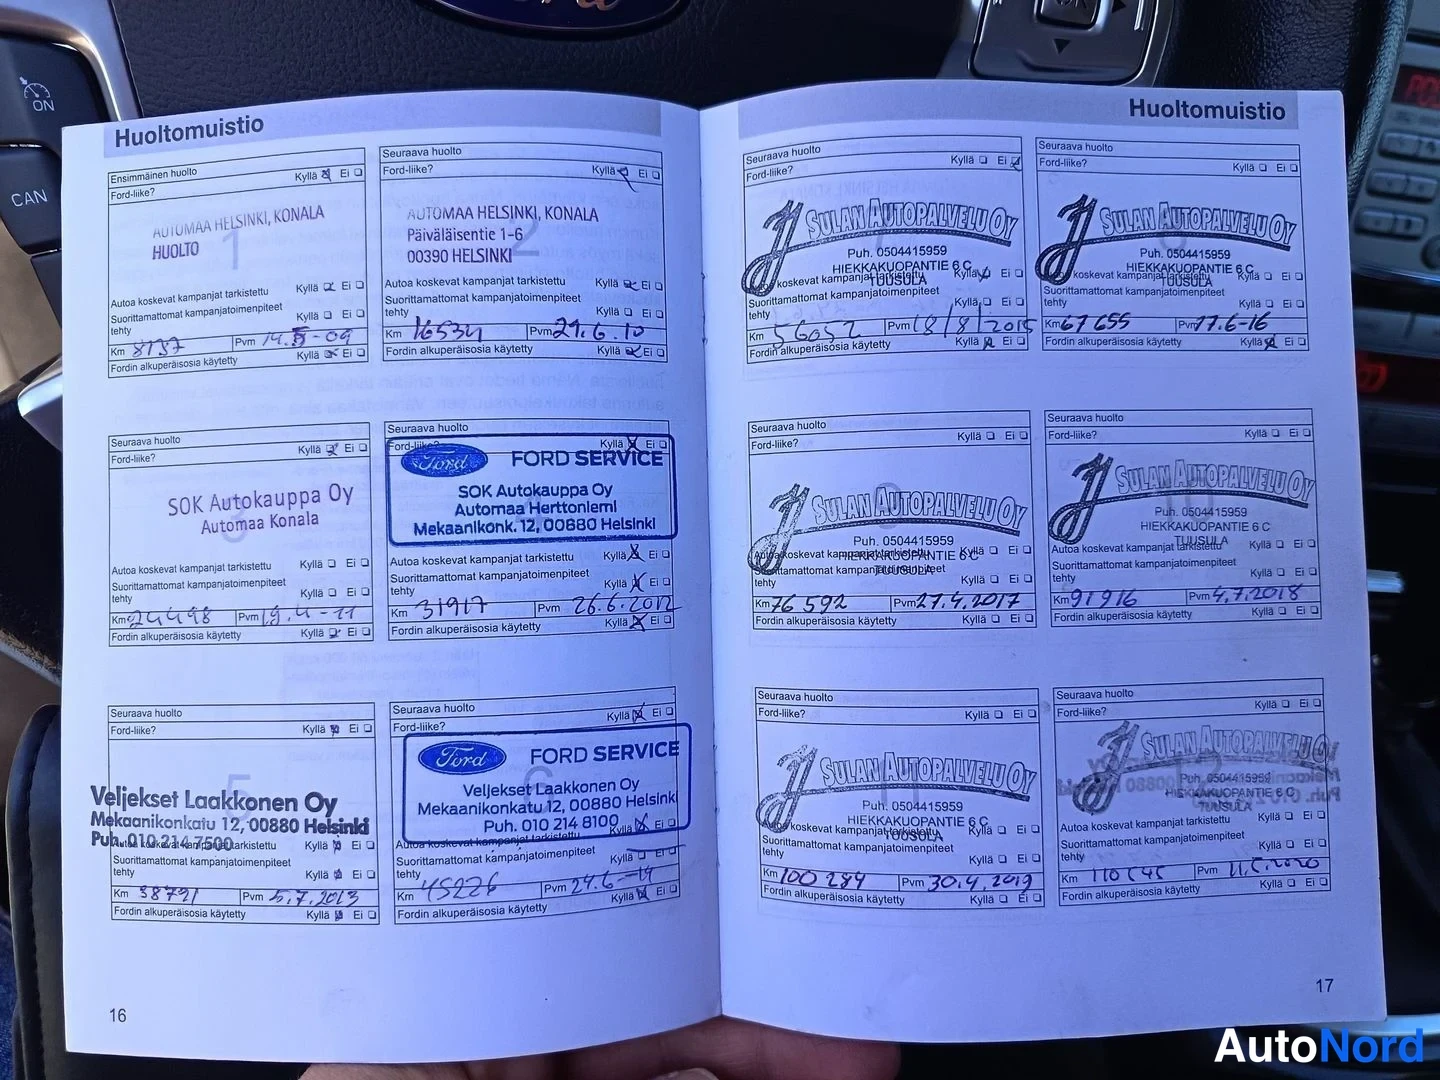 ON
CAN
OK
Huoltomuistio
Ensimmäinen huolto
Ford-liike?
Kyllä Ei
AUTOMAA HELSINKI, KONALA
HUOLTO
1
Autoa koskevat kampanjat tarkistettu
Kyllä Ei
Suorittamattomat kampanjatoimenpiteet
tehty
Kyllä Ei
Km 8137 Pvm 14.5-09
Fordin alkuperäisosia käytetty Kyllä Ei
Seuraava huolto
Ford-liike?
Kyllä Ei
AUTOMAA HELSINKI, KONALA
Päiväläisentie 1-6
00390 HELSINKI
2
Autoa koskevat kampanjat tarkistettu Kyllä Ei
Suorittamattomat kampanjatoimenpiteet
tehty
Kyllä Ei
Km 16534 Pvm 29.6.10
Fordin alkuperäisosia käytetty Kyllä Ei
Seuraava huolto
Ford-liike?
Kyllä Ei
SOK Autokauppa Oy
Automaa Konala
3
Autoa koskevat kampanjat tarkistettu Kyllä Ei
Suorittamattomat kampanjatoimenpiteet
tehty
Kyllä Ei
Km 24498 Pvm 19.4-11
Fordin alkuperäisosia käytetty Kyllä Ei
Seuraava huolto
Ford-liike? Kyllä Ei
Ford FORD SERVICE
SOK Autokauppa Oy
Automaa Herttoniemi
Mekaanikonk. 12, 00880 Helsinki
Autoa koskevat kampanjat tarkistettu Kyllä Ei
Suorittamattomat kampanjatoimenpiteet
tehty
Kyllä Ei
Km 31917 Pvm 26.6.2012
Fordin alkuperäisosia käytetty Kyllä Ei
Seuraava huolto
Ford-liike?
Kyllä Ei
5
Veljekset Laakkonen Oy
Mekaanikonkatu 12, 00880 Helsinki
Puh. 010 214 7500
Autoa koskevat kampanjat tarkistettu Kyllä Ei
Suorittamattomat kampanjatoimenpiteet
tehty
Kyllä Ei
Km 38791 Pvm 5.7.2013
Fordin alkuperäisosia käytetty Kyllä Ei
Seuraava huolto
Ford-liike?
Kyllä Ei
Ford FORD SERVICE
6
Veljekset Laakkonen Oy
Mekaanikonkatu 12, 00880 Helsinki
Puh. 010 214 8100
Autoa koskevat kampanjat tarkistettu Kyllä Ei
Suorittamattomat kampanjatoimenpiteet
tehty
Kyllä Ei
Km 45226 Pvm 24.6-14
Fordin alkuperäisosia käytetty Kyllä Ei
16
Huoltomuistio
Seuraava huolto
Ford-liike?
Kyllä Ei
SULAN AUTOPALVELU OY
Puh. 0504415959
HIEKKAKUOPANTIE 6 C
TUUSULA
koskevat kampanjat tarkistettu Kyllä Ei
Suorittamattomat kampanjatoimenpiteet
tehty
Kyllä Ei
Km 56052 Pvm 18/8/2015
Fordin alkuperäisosia käytetty Kyllä Ei
Seuraava huolto
Ford-liike?
Kyllä Ei
SULAN AUTOPALVELU OY
Puh. 0504415959
HIEKKAKUOPANTIE 6 C
TUUSULA
koskevat kampanjat tarkistettu Kyllä Ei
Suorittamattomat kampanjatoimenpiteet
tehty
Kyllä Ei
Km 67655 Pvm 17.6-16
Fordin alkuperäisosia käytetty Kyllä Ei
Seuraava huolto
Ford-liike?
Kyllä Ei
9
SULAN AUTOPALVELU OY
Puh. 0504415959
HIEKKAKUOPANTIE 6 C
TUUSULA
Autoa koskevat kampanjat tarkistettu Kyllä Ei
Suorittamattomat kampanjatoimenpiteet
tehty
Kyllä Ei
Km 76 592 Pvm 27.4.2017
Fordin alkuperäisosia käytetty Kyllä Ei
Seuraava huolto
Ford-liike?
Kyllä Ei
10
SULAN AUTOPALVELU OY
Puh. 0504415959
HIEKKAKUOPANTIE 6 C
TUUSULA
Autoa koskevat kampanjat tarkistettu Kyllä Ei
Suorittamattomat kampanjatoimenpiteet
tehty
Kyllä Ei
Km 91916 Pvm 4.7.2018
Fordin alkuperäisosia käytetty Kyllä Ei
Seuraava huolto
Ford-liike?
Kyllä Ei
SULAN AUTOPALVELU OY
Puh. 0504415959
HIEKKAKUOPANTIE 6 C
TUUSULA
koskevat kampanjat tarkistettu Kyllä Ei
Suorittamattomat kampanjatoimenpiteet
tehty
Kyllä Ei
Km 100 284 Pvm 30.4.2019
Fordin alkuperäisosia käytetty Kyllä Ei
Seuraava huolto
Ford-liike?
Kyllä Ei
SULAN AUTOPALVELU OY
Puh. 0504415959
HIEKKAKUOPANTIE 6 C
TUUSULA
Autoa koskevat kampanjat tarkistettu Kyllä Ei
Suorittamattomat kampanjatoimenpiteet
tehty
Kyllä Ei
Km Pvm
Fordin alkuperäisosia käytetty Kyllä Ei
17
AutoNord